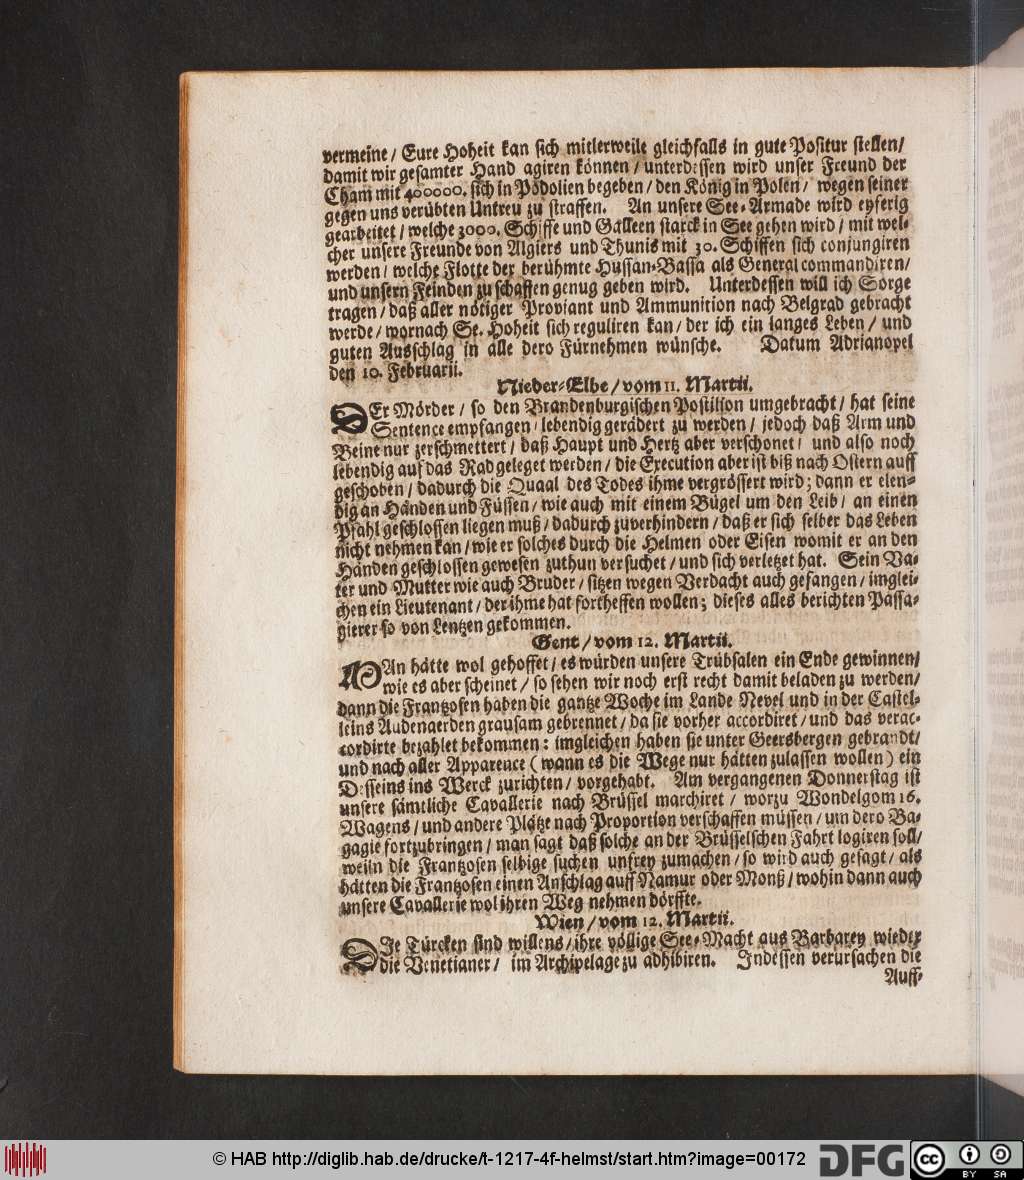 vermeine / Eure Hoheit kan sich mitlerweile gleichfalls in gute Positur stellen /
damit wir gesamter Hand agiren können / unterdessen wird unser Freund der
Cham mit 400000. sich in Podolien begeben / den König in Polen / wegen seiner
gegen uns verübten Untreu zu straffen. An unsere See-Armade wird eyferig
gearbeitet / welche 3000. Schiffe und Galleen starck in See gehen wird / mit wel-
cher unsere Freunde von Algiers und Thunis mit 30. Schiffen sich conjungiren
werden / welche Flotte der berühmte Hussan-Bassa als General commandiren /
und unsern Feinden zu schaffen genug geben wird. Unterdessen will ich Sorge
tragen / daß aller nötiger Proviant und Ammunition nach Belgrad gebracht
werde / wornach Se. Hoheit sich reguliren kan / der ich ein langes Leben / und
guten Ausschlag in alle dero Fürnehmen wünsche. Datum Adrianopel
den 10. Februarii.
Nieder-Elbe / vom 11. Martii.
DEr Mörder / so den Brandenburgischen Postilion umgebracht / hat seine
Sentence empfangen / lebendig gerädert zu werden / jedoch daß Arm und
Beine nur zerschmettert / daß Haupt und Hertz aber verschonet / und also noch
lebendig auf das Rad geleget werden / die Execution aber ist biß nach Ostern auff
geschoben / dadurch die Quaal des Todes ihme vergrössert wird; dann er elen-
dig an Händen und Füssen / wie auch mit einem Bügel um den Leib / an einen
Pfahl geschlossen liegen muß / dadurch zuverhindern / daß er sich selber das Leben
nicht nehmen kan / wie er solches durch die Helmen oder Eisen womit er an den
Händen geschlossen gewesen zuthun versuchet / und sich verletzet hat. Sein Va-
ter und Mutter wie auch Bruder / sitzen wegen Verdacht auch gefangen / imglei-
chen ein Lieutenant / der ihme hat fortheffen wollen; dieses alles berichten Passa-
gierer so von Lentzen gekommen.
Gent / vom 12. Martii.
MAn hätte wol gehoffet / es würden unsere Trübsalen ein Ende gewinnen /
wie es aber scheinet / so sehen wir noch erst recht damit beladen zu werden /
dann die Frantzosen haben die gantze Woche im Lande Nevel und in der Castel-
leins Audenaerden grausam gebrennet / da sie vorher accordiret / und das verac-
cordirte bezahlet bekommen: imgleichen haben sie unter Geersbergen gebrandt /
und nach aller Apparence (wann es die Wege nur hätten zulassen wollen) ein
Desseins ins Werck zurichten / vorgehabt. Am vergangenen Donnerstag ist
unsere sämtliche Cavallerie nach Brüssel marchiret / worzu Wondelgom 16.
Wagens / und andere Plätze nach Proportion verschaffen müssen / um dero Ba-
gagie fortzubringen / man sagt daß solche an der Brüsselschen Fahrt logiren soll /
weiln die Frantzosen selbige suchen unfrey zumachen / so wird auch gesagt / als
hätten die Frantzosen einen Anschlag auff Namur oder Monß / wohin dann auch
unsere Cavallerie wol ihren Weg nehmen dörffte.
Wien / vom 12. Martii.
DIe Türcken sind willens / ihre völlige See-Macht aus Barbarey wieder
die Venetianer / im Archipelage zu adhibiren. Indessen verursachen die
Auff-
© HAB http://diglib.hab.de/drucke/t-1217-4f-helmst/start.htm?image=00172
DFG
cc
BY SA